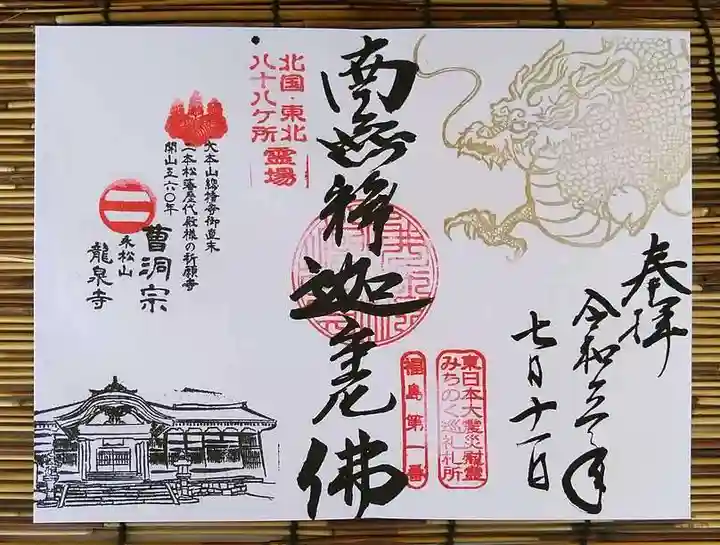 奉拝
令和元年
七月十一日
南無釋迦牟尼佛
東日本大震災慰霊
みちのく巡礼札所
福島第一番
北国・東北
八十八ケ所霊場
大本山總持寺御直末
二本松藩歴代殿様の祈願寺
開山五六〇年
曹洞宗
永松山
龍泉寺